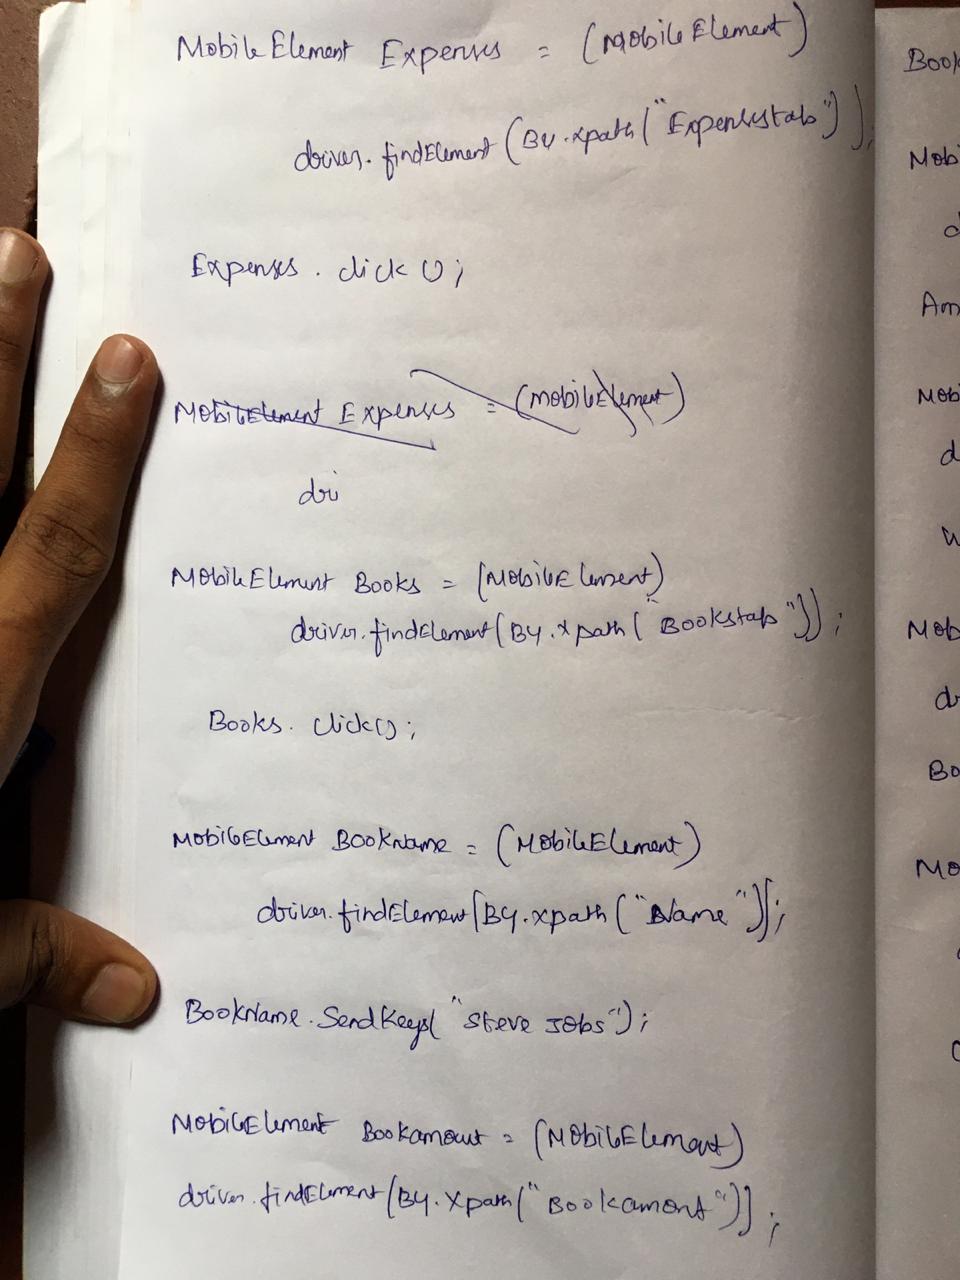 MobileElement Expenses = (MobileElement)
driver.findElement(By.xpath("Expensestab"));
Expenses.click();
MobileElement Expenses = (MobileElement)
dri
MobileElement Books = (MobileElement)
driver.findElement(By.xpath("Bookstab"));
Books.click();
MobileElement BookName = (MobileElement)
driver.findElement(By.xpath("Name"));
BookName.SendKeys("Steve Jobs");
MobileElement Bookamout = (MobileElement)
driver.findElement(By.xpath("Bookamont"));
Book
Mobi
d
Am
Mob
d
Mob
dr
Bo
Mo